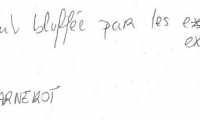 bluffée par les ex
ex
ARNEROT